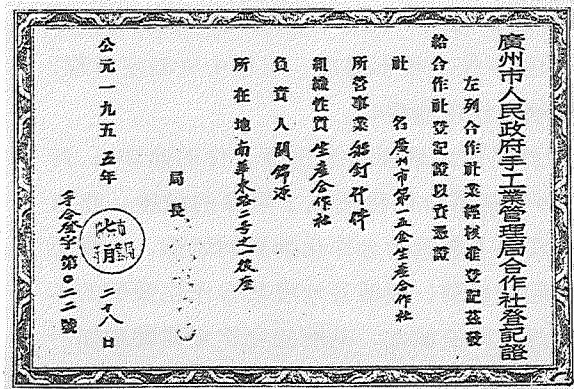 廣州市人民政府手工業管理局合作社登記證
左列合作社業經核准登記茲發
給合作社登記證以資憑證
社名 廣州市第一五金生產合作社
所營事業 船釘 件
組織性質 生產合作社
負責人 關錦源
所在地 南華東路二号之一後座
局長
公元一九五五年 月二十八日
手合登字第〇二二號